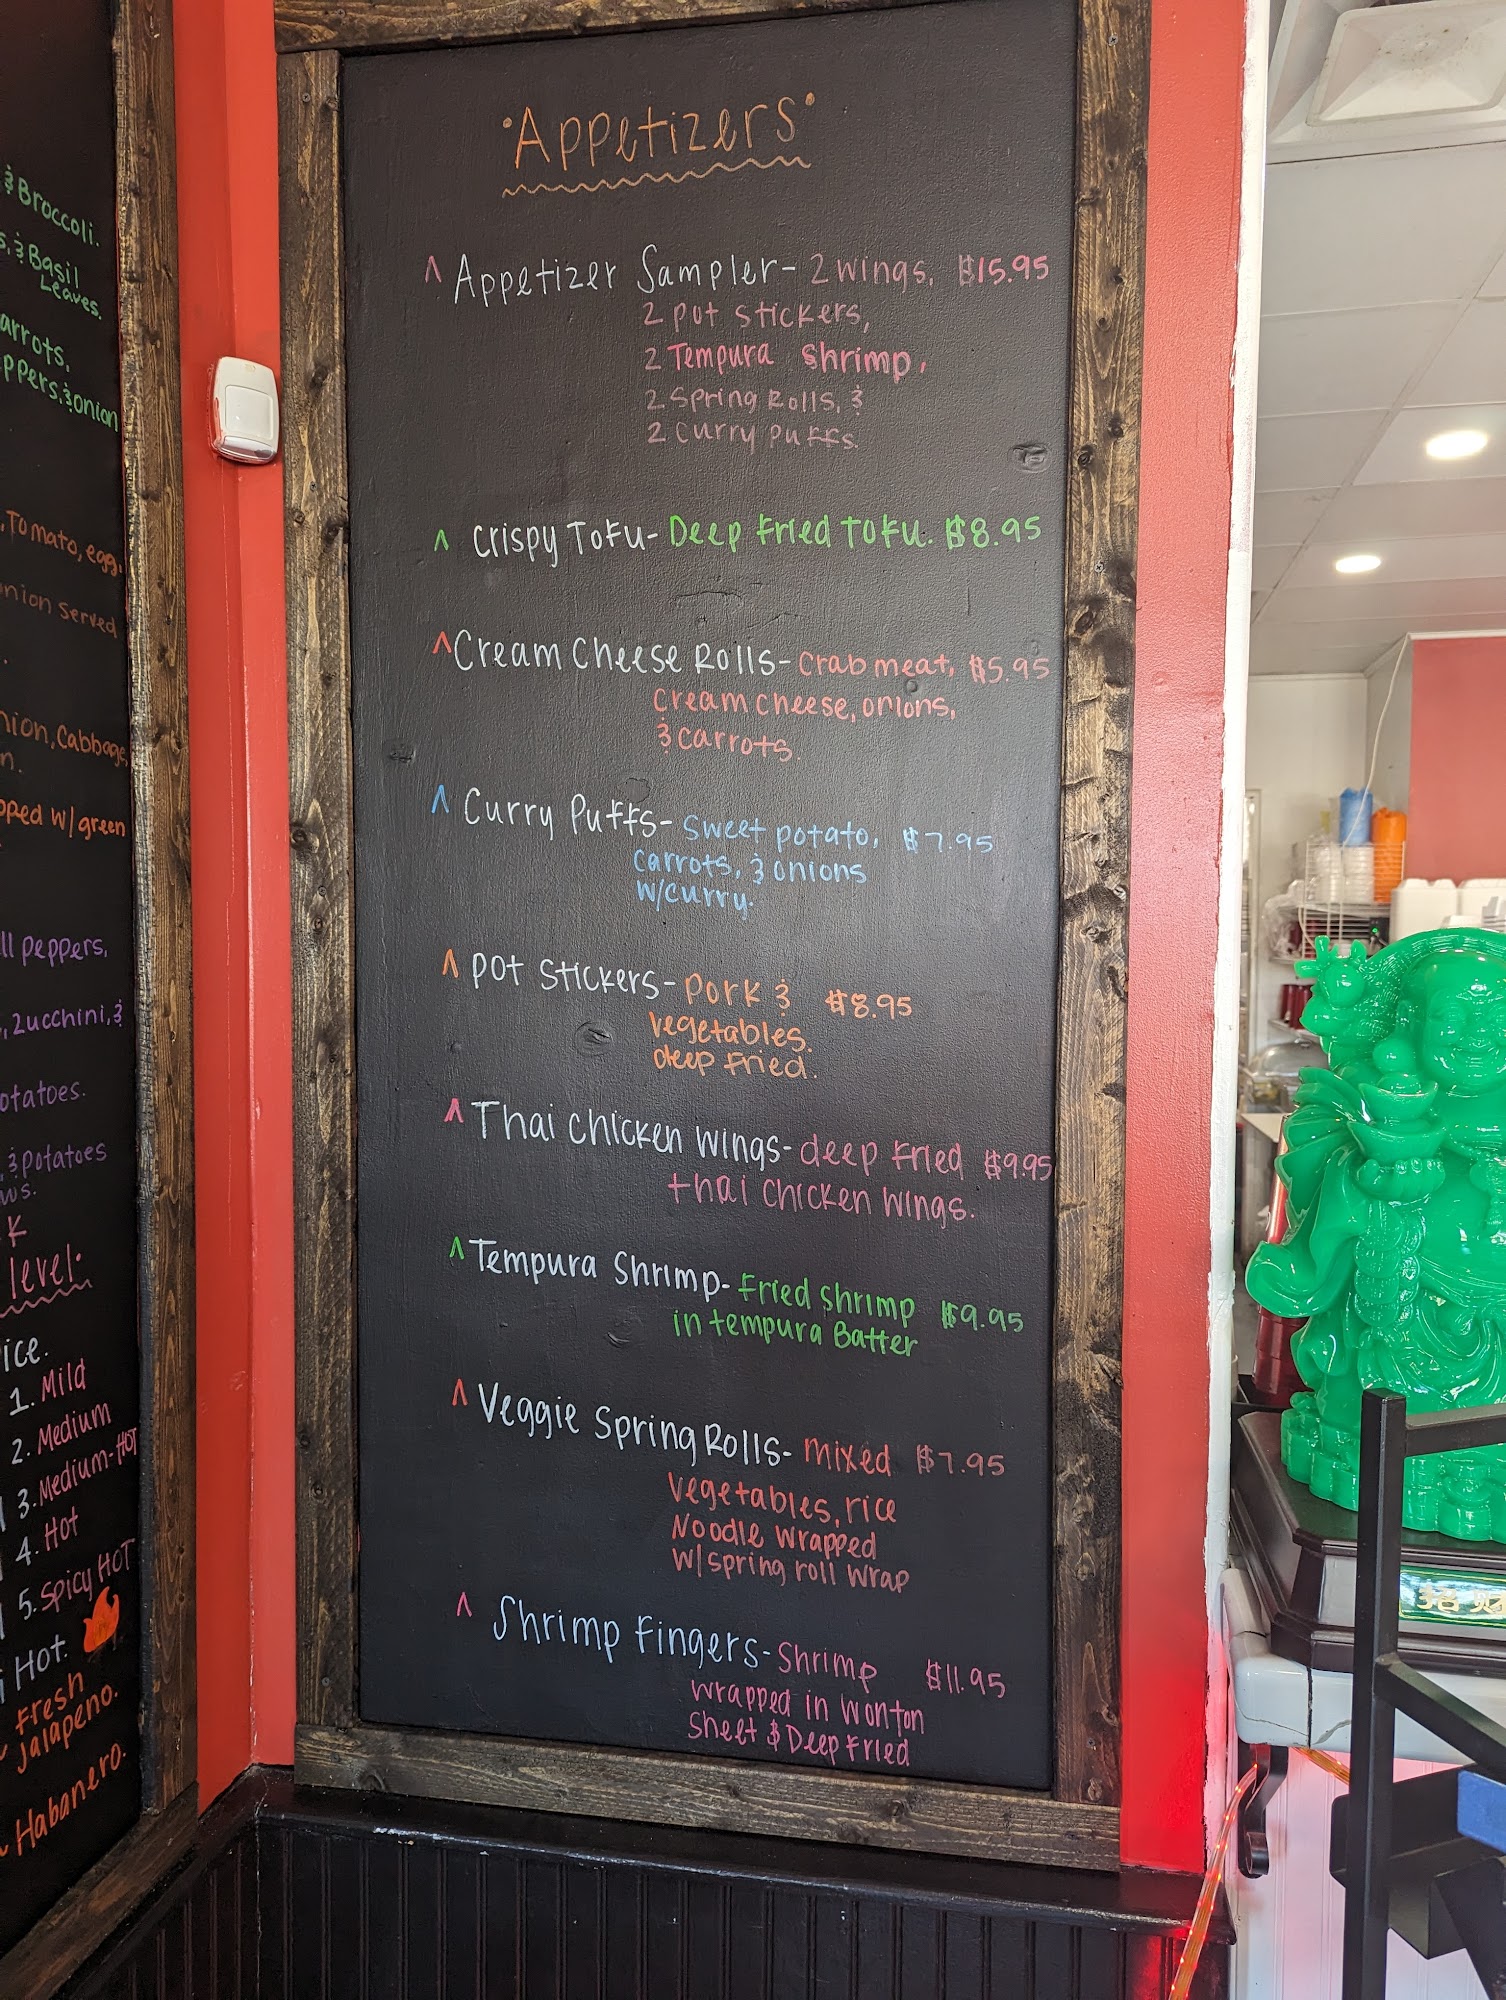 & Broccoli.
& Basil
Leaves.
arrots,
ppers, & onion
Tomato, egg,
nion served
nion, Cabbage,
n.
pped w/ green
ll peppers,
, zucchini, &
otatoes.
, & potatoes
ws.
K
level
ice.
1. Mild
2. Medium
3. Medium-HOT
4. Hot
5. Spicy HOT
Hot.
Fresh
jalapeno.
Habanero.
Appetizers
^ Appetizer Sampler- 2 wings, $15.95
2 pot stickers,
2 Tempura Shrimp,
2 Spring Rolls, &
2 curry puffs.
^ Crispy Tofu- Deep Fried Tofu. $8.95
^ Cream Cheese Rolls- Crab meat, $5.95
cream cheese, onions,
& carrots.
^ Curry Puffs- Sweet potato, $7.95
carrots, & onions
w/curry.
^ Pot Stickers- Pork & $8.95
vegetables.
deep fried.
^ Thai Chicken Wings- deep fried $9.95
thai chicken wings.
^ Tempura Shrimp- Fried shrimp $9.95
in tempura Batter
^ Veggie Spring Rolls- mixed $7.95
vegetables, rice
Noodle wrapped
w/ spring roll wrap
^ Shrimp Fingers- Shrimp $11.95
wrapped in wonton
sheet $ Deep Fried
招财